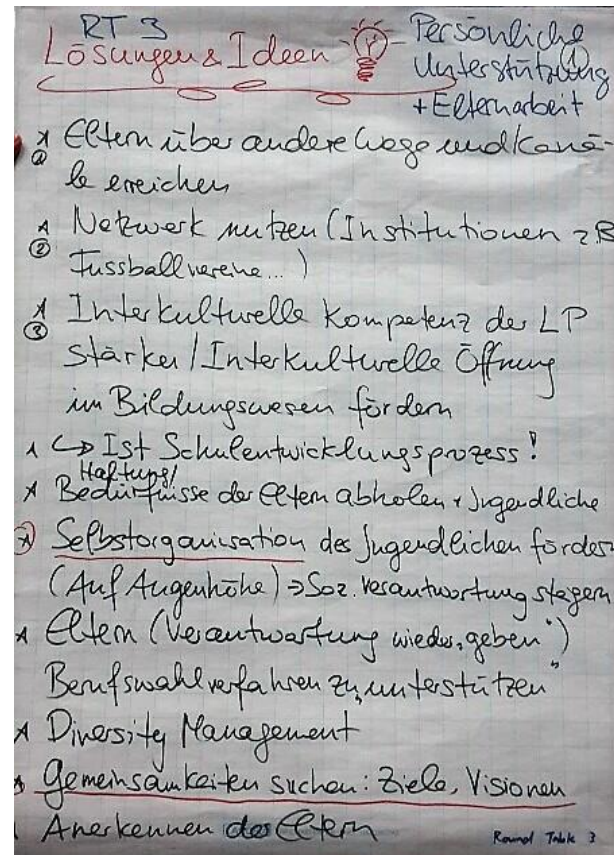 RT 3
Lösungen & Ideen
Persönliche
Unterstützung
+ Elternarbeit
* Eltern über andere Wege und Kanä-
le erreichen
①
* Netzwerk nutzen (Institutionen z B
② Fussballvereine...)
* Interkulturelle Kompetenz der LP
③ stärken / Interkulturelle Öffnung
im Bildungswesen fördern
* ↳ Ist Schulentwicklungsprozess!
Haltung/
* Bedürfnisse der Eltern abholen + Jugendliche
* Selbstorganisation des Jugendlichen förder
(Auf Augenhöhe) ⇒ Soz. Verantwortung stegern
* Eltern (Verantwortung wieder „geben")
Berufswahlverfahren zu „unterstützen"
* Diversity Management
* Gemeinsamkeiten suchen: Ziele, Visionen
Anerkennen der Eltern
Round Table 3